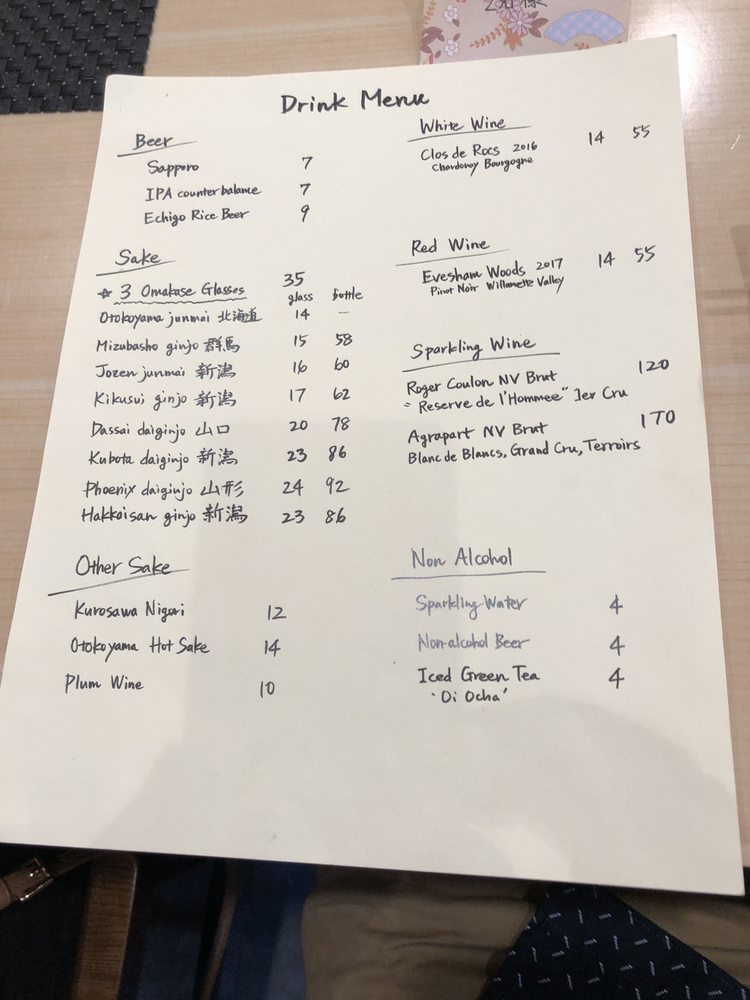 Drink Menu
Beer
Sapporo 7
IPA counter balance 7
Echigo Rice Beer 9
Sake
☆ 3 Omakase Glasses 35
glass bottle
Otokoyama junmai 北海道 14 –
Mizubasho ginjo 群馬 15 58
Jozen junmai 新潟 16 60
Kikusui ginjo 新潟 17 62
Dassai daiginjo 山口 20 78
Kubota daiginjo 新潟 23 86
Phoenix daiginjo 山形 24 92
Hakkaisan ginjo 新潟 23 86
Other Sake
Kurosawa Nigori 12
Otokoyama Hot Sake 14
Plum Wine 10
White Wine
Clos de Rocs 2016 14 55
Chardonay Bourgogne
Red Wine
Evesham Woods 2017 14 55
Pinot Noir Willamette Valley
Sparkling Wine
Roger Coulon NV Brut 120
"Reserve de l'Hommee" 1er Cru
Agrapart NV Brut 170
Blanc de Blancs, Grand Cru, Terroirs
Non Alcohol
Sparkling Water 4
Non-alcohol Beer 4
Iced Green Tea 4
'Oi Ocha'